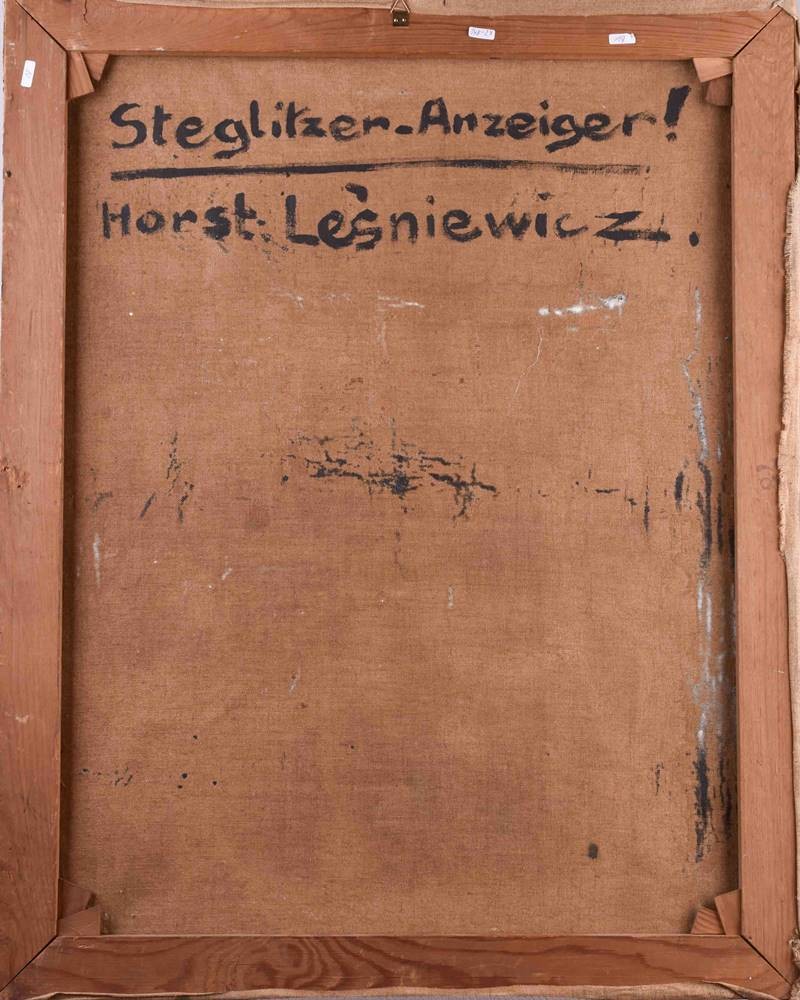 Steglitzer-Anzeiger!
Horst Leśniewicz.